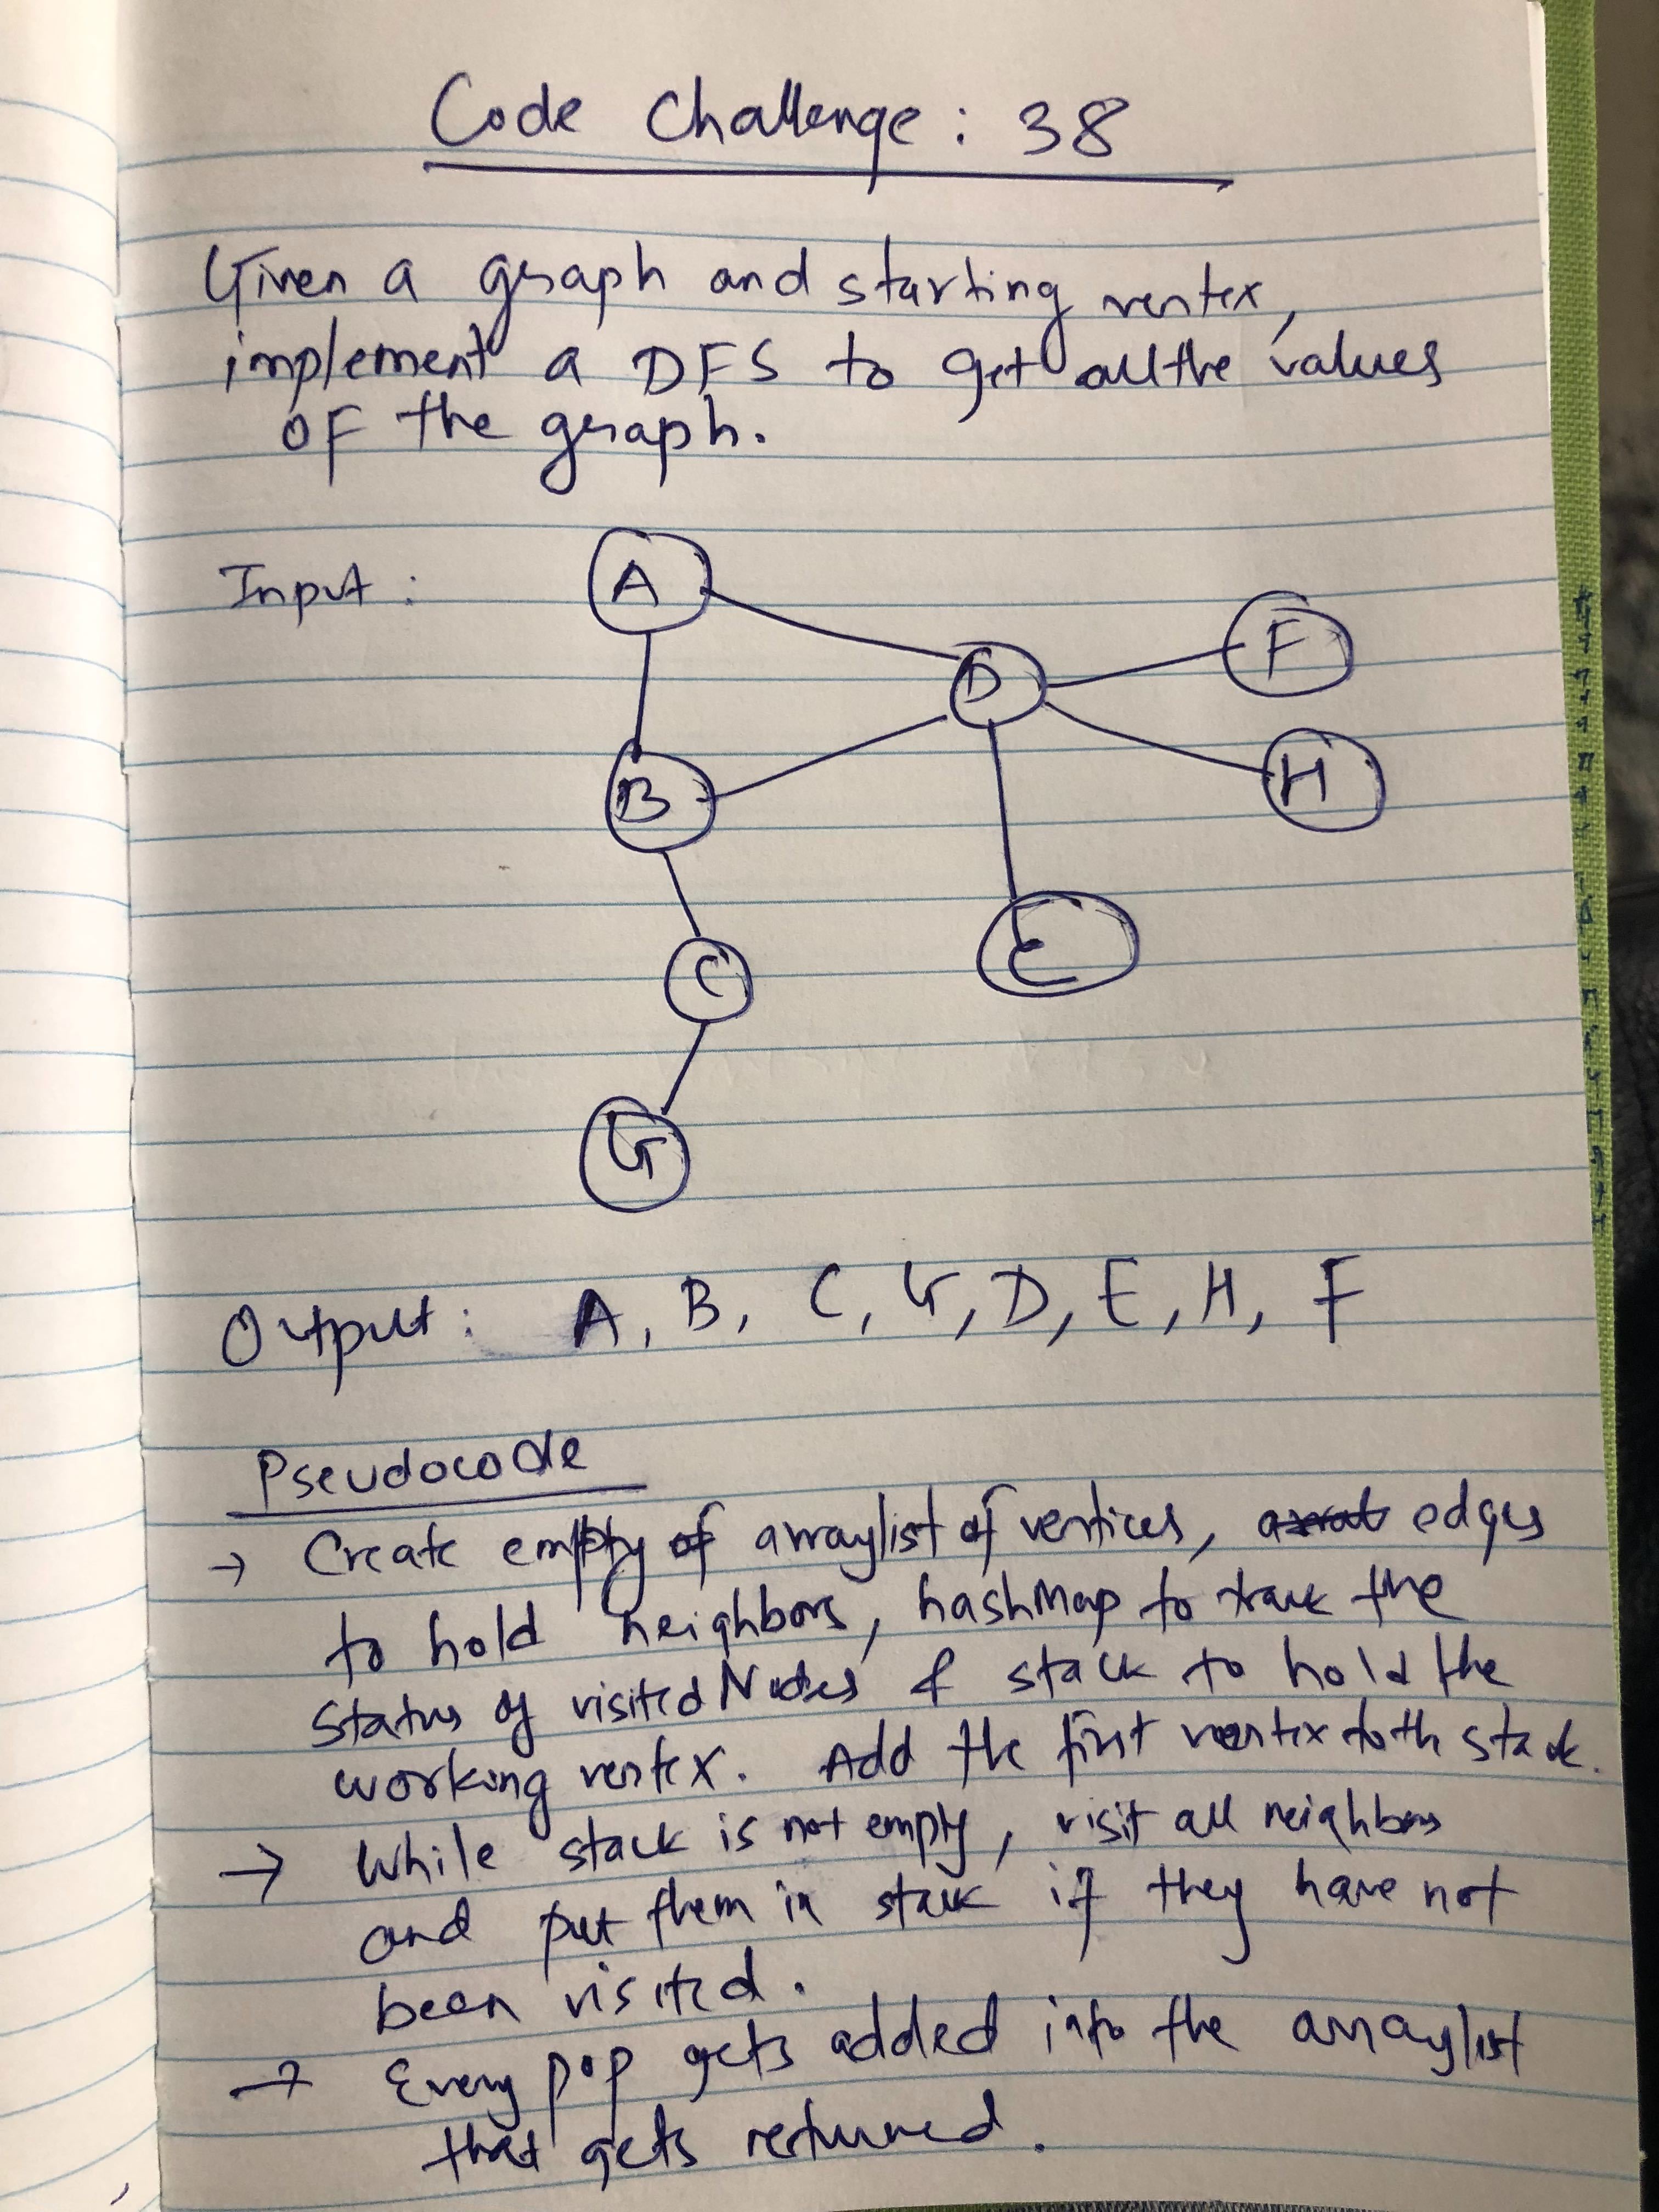 Code Challenge : 38
Given a graph and starting vertex,
implement a DFS to get all the values
of the graph.
Input :
A
D
F
B
H
C
E
G
Output : A, B, C, G, D, E, H, F
Pseudocode
→ Create empty of arraylist of vertices, edges
to hold neighbors, hashMap to track the
status of visited Nodes & stack to hold the
working vertex. Add the first vertex to th stack.
→ While stack is not empty, visit all neighbors
and put them in stack if they have not
been visited.
→ Every pop gets added into the arraylist
that gets returned.